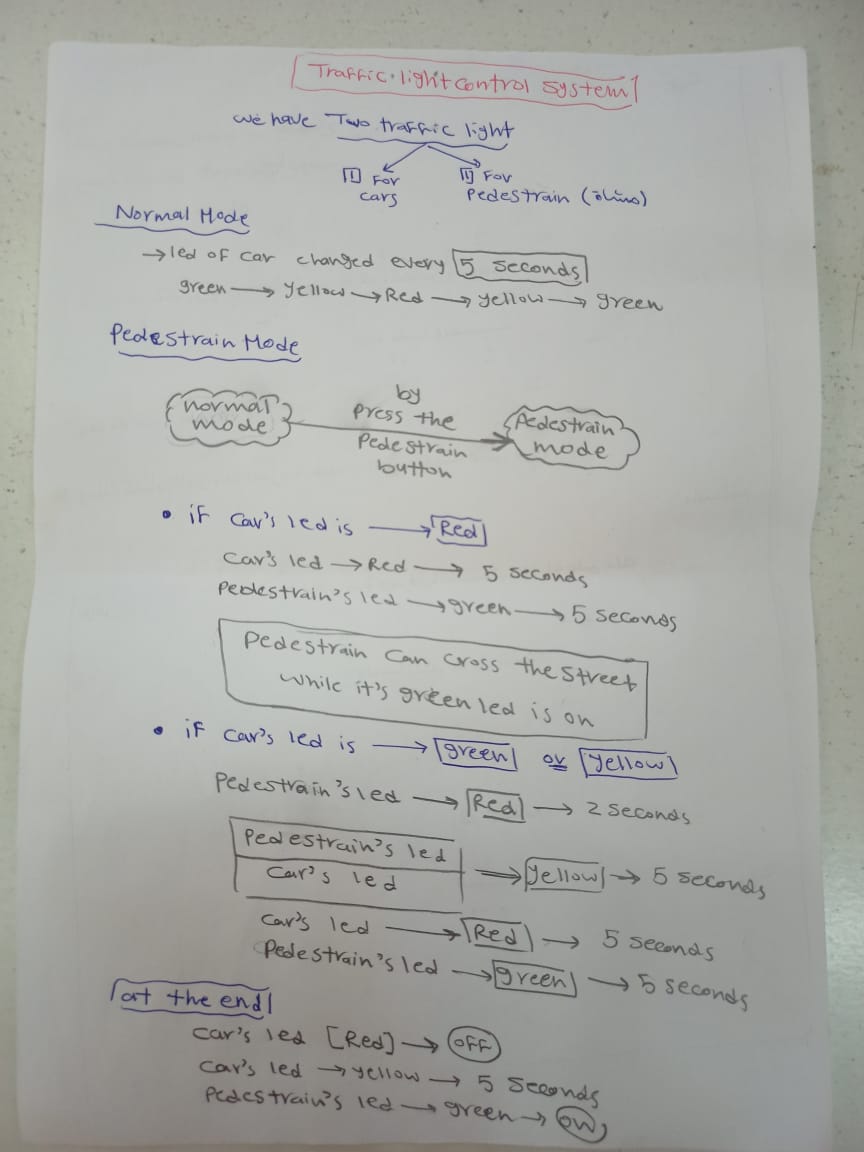 Traffic. light control system
we have Two traffic light
1 For cars
1 For Pedestrain (مشاة)
Normal Mode
→ led of car changed every 5 seconds
green → yellow → Red → yellow → green
Pedestrain Mode
normal mode
by press the Pedestrain button
Pedestrain mode
• if car's led is → Red
car's led → Red → 5 seconds
Pedestrain's led → green → 5 seconds
Pedestrain can cross the street
while it's green led is on
• if car's led is → green or yellow
Pedestrain's led → Red → 2 seconds
Pedestrain's led
car's led
→ yellow → 5 seconds
car's led → Red → 5 seconds
Pedestrain's led → green → 5 seconds
at the end
car's led [Red] → OFF
car's led → yellow → 5 seconds
Pedestrain's led → green → ON